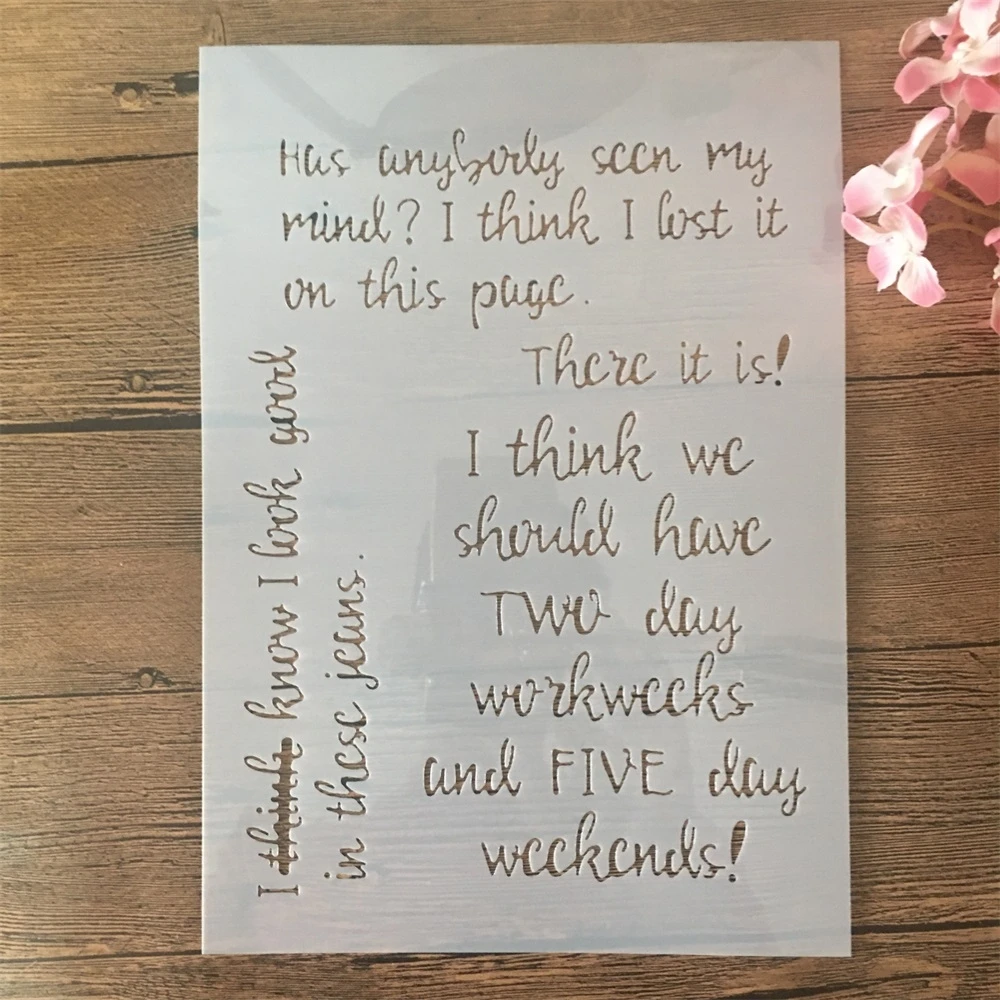 Has anybody seen my
mind? I think I lost it
on this page.
There it is!
I think we
should have
TWO day
workweeks
and FIVE day
weekends!
I think know I look good
in these jeans.